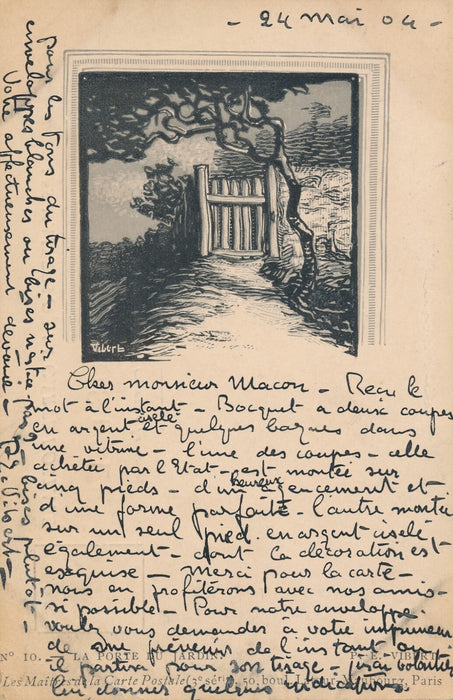 - 24 Mai 04 -
Vibert
Cher monsieur Macon - Reçu le
mot à l'instant - Bocquet a deux coupes
en argent ciselé et quelques bagues dans
une vitrine - l'une des coupes - celle
achetée par l'Etat - est montée sur
cinq pieds - d'un heureux agencement et
d'une forme parfaite - l'autre montée
sur un seul pied en argent ciselé,
également - dont la décoration est
exquise - Merci pour la carte -
nous en profiterons avec nos amis -
si possible - Pour notre enveloppe
voulez vous demander à votre imprimeur
de me prévenir de l'instant où
il partira pour son tirage - j'irai volontiers
lui donner quelques indications
pour les tons du tirage - sur
enveloppes blanches ou bises
bises plutôt -
Votre affectueusement dévoué -
P. E. Vibert -
N° 10. - LA PORTE DU JARDIN. P.-E. VIBERT
Les Maîtres de la Carte Postale (3e série), 50, boul. Latour-Maubourg, Paris